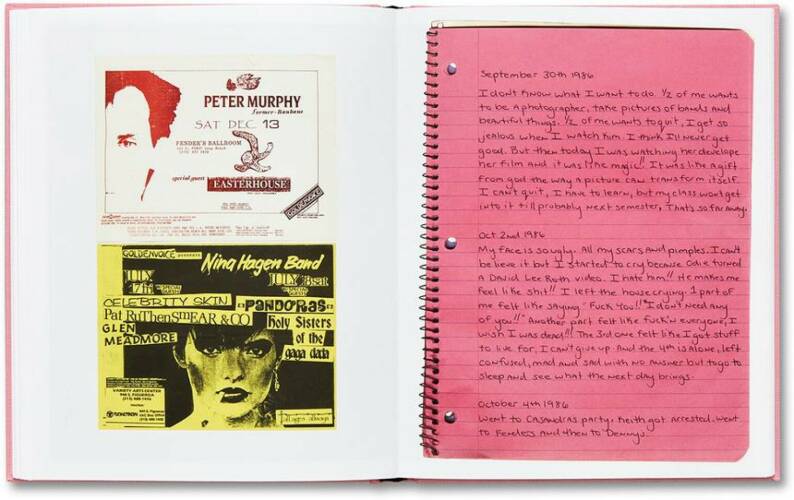 PETER MURPHY
former-Bauhaus
SAT DEC 13
FENDER'S BALLROOM
special guest
EASTERHOUSE
GOLDENVOICE
GOLDENVOICE presents
Nina Hagen Band
JULY
17th
JULY
CELEBRITY SKIN
PANDORAS
Pat RuThenSmEAR & CO
GLEN
MEADMORE
Holy Sisters
of the
gaga dada
VARIETY ARTS CENTER
all ages always
September 30th 1986
I don't know what I want to do. 1/2 of me wants
to be a photographer, take pictures of bands and
beautiful things. 1/2 of me wants to quit, I get so
jealous when I watch him I think I'll never get
good. But then today I was watching her develope
her film and it was like magic!! It was like a gift
from god the way a picture can transform itself.
I can't quit, I have to learn, but my class wont get
into it till probably next semester, That's so far away.
Oct 2nd 1986
My face is so ugly. All my scars and pimples. I can't
be lieve it but I started to cry because Odie turned
a David Lee Roth video. I hate him!! He makes me
feel like shit!! I left the house crying. 1 part of
me felt like saying "Fuck You!! I don't need any
of you!!" Another part felt like fuck'n everyone, I
wish I was dead!! The 3rd one felt like I got stuff
to live for, I can't give up. And the 4th is alone, left
confused, mad and sad with no answer but to go to
sleep and see what the next day brings.
October 4th 1986
Went to Casandras party, Keith got arrested. Went
to Fenders and then to Dennys.